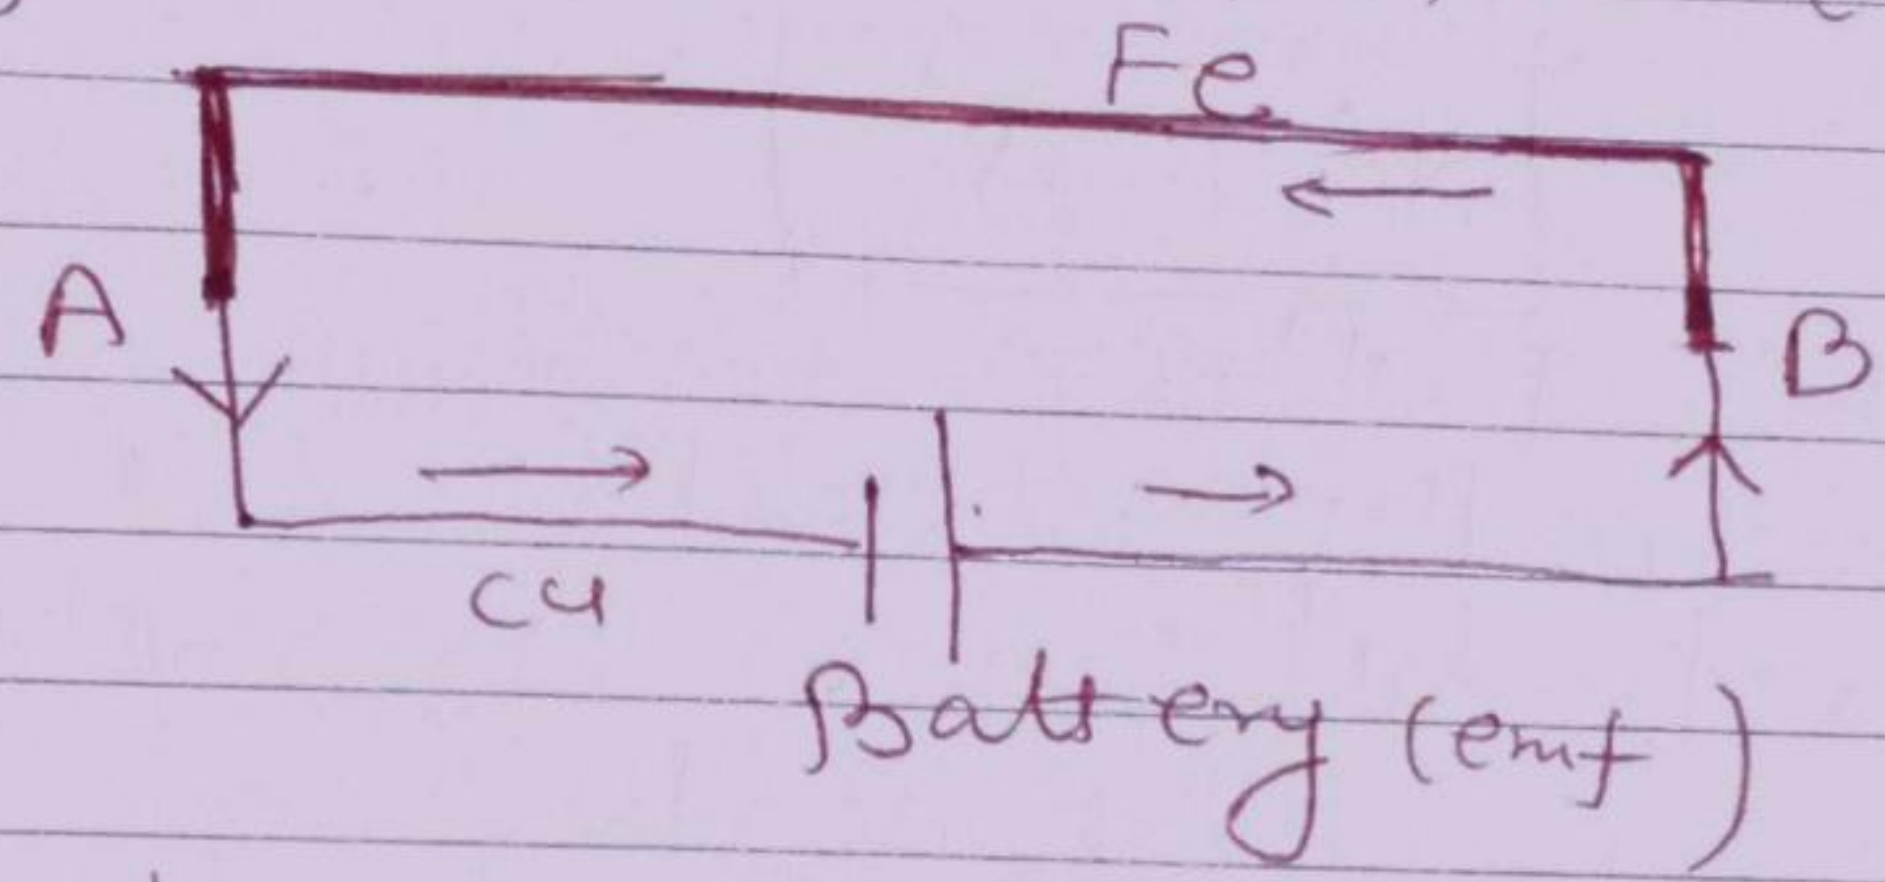 Fe
A
B
Cu
Battery (emf)